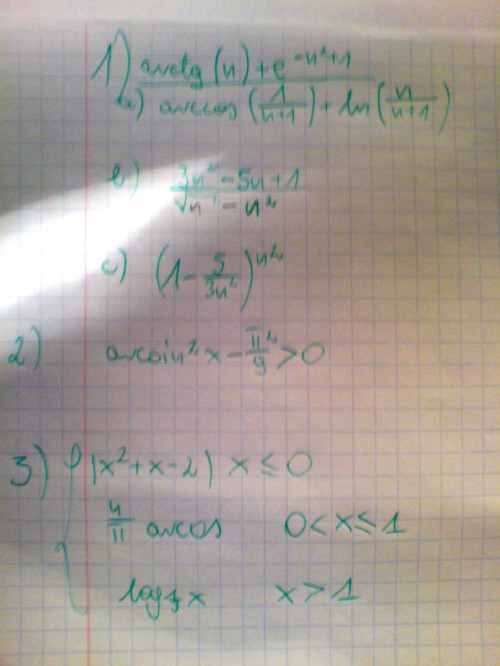 1) arctg (n) + e^{-n²+1}
a) arccos (1/(n+1)) + ln (n/(n+1))
b) 3n² - 5n + 1
√n - n²
c) (1 - 5/(3n²))^{n²}
2) arcsin² x - π²/9 > 0
3) |x² + x - 2| x ≤ 0
4/π arcos 0 < x ≤ 1
x x > 1